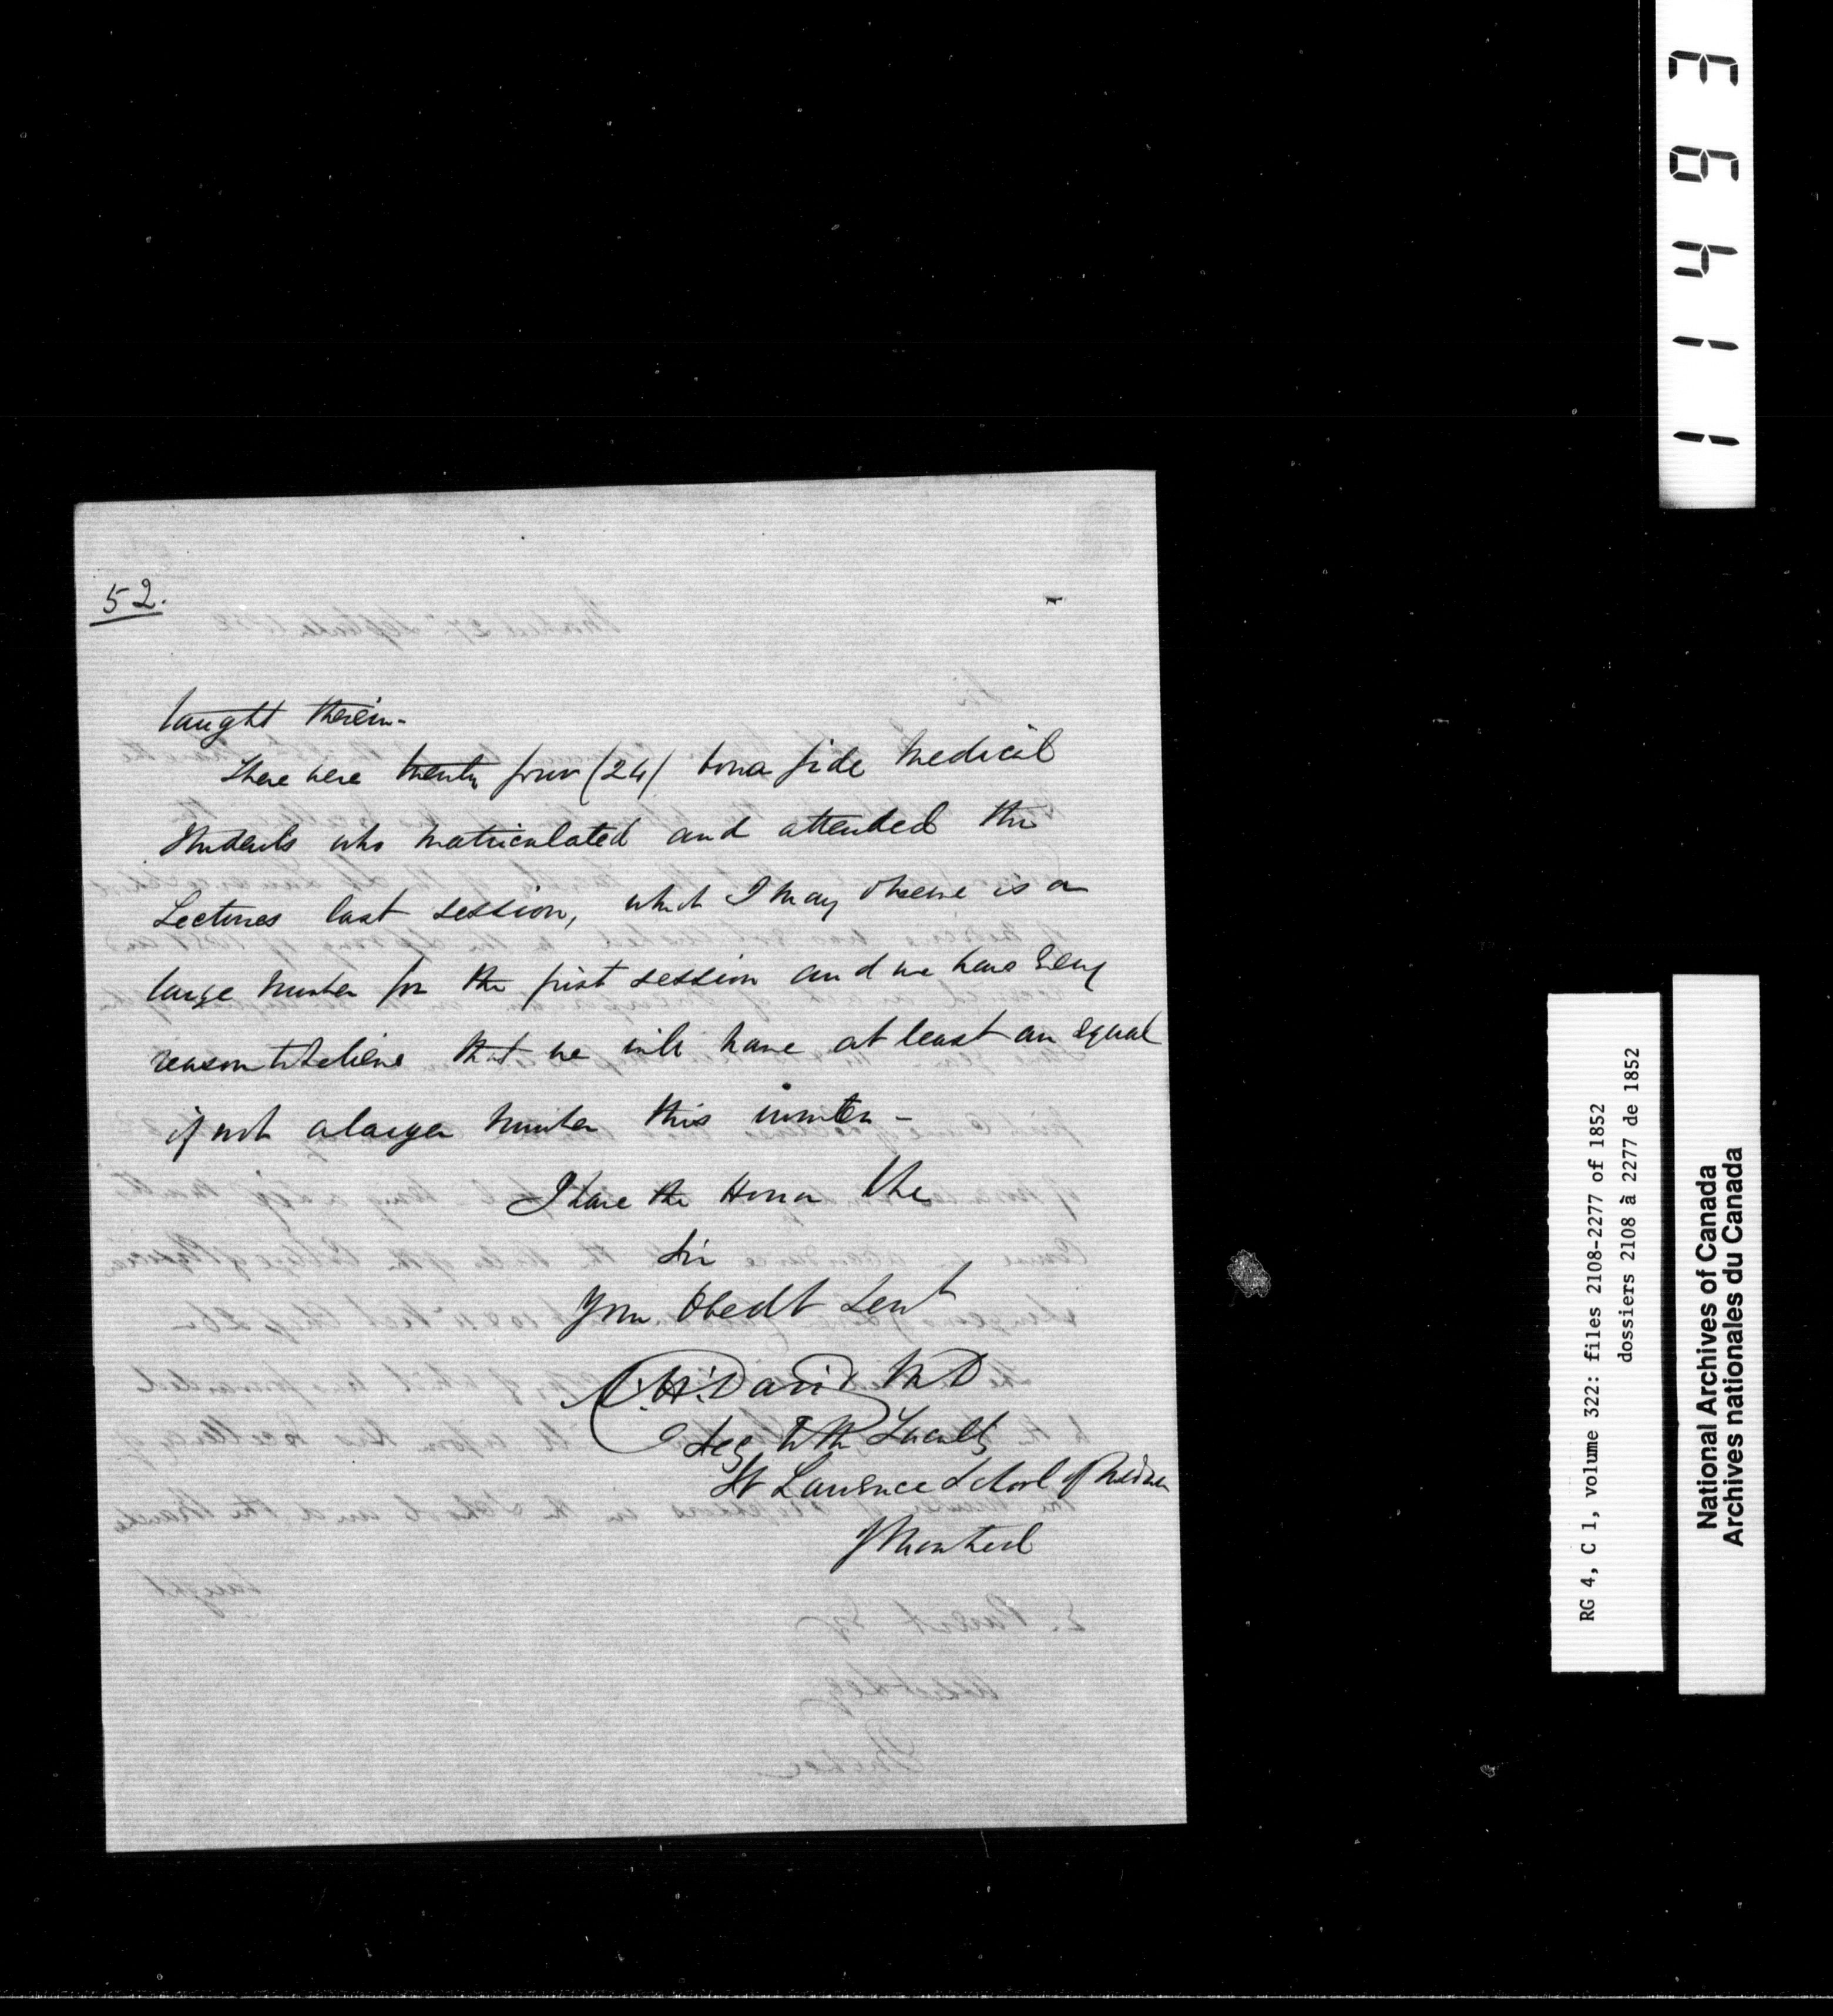 52.
taught therein-
There were twenty four (24) bona fide Medical
Students who matriculated and attended the
Lectures last session, which I may observe is a
large number for the first session and we have every
reason to believe that we will have at least an equal
if not a larger number this winter -
I have the Honor to be
Sir
Your Obedt Servt
A. H. David MD
Secy to the Faculty
St Lawrence School of Medicine
Montreal
11493
RG 4, C 1, volume 322: files 2108-2277 of 1852
dossiers 2108 à 2277 de 1852
National Archives of Canada
Archives nationales du Canada